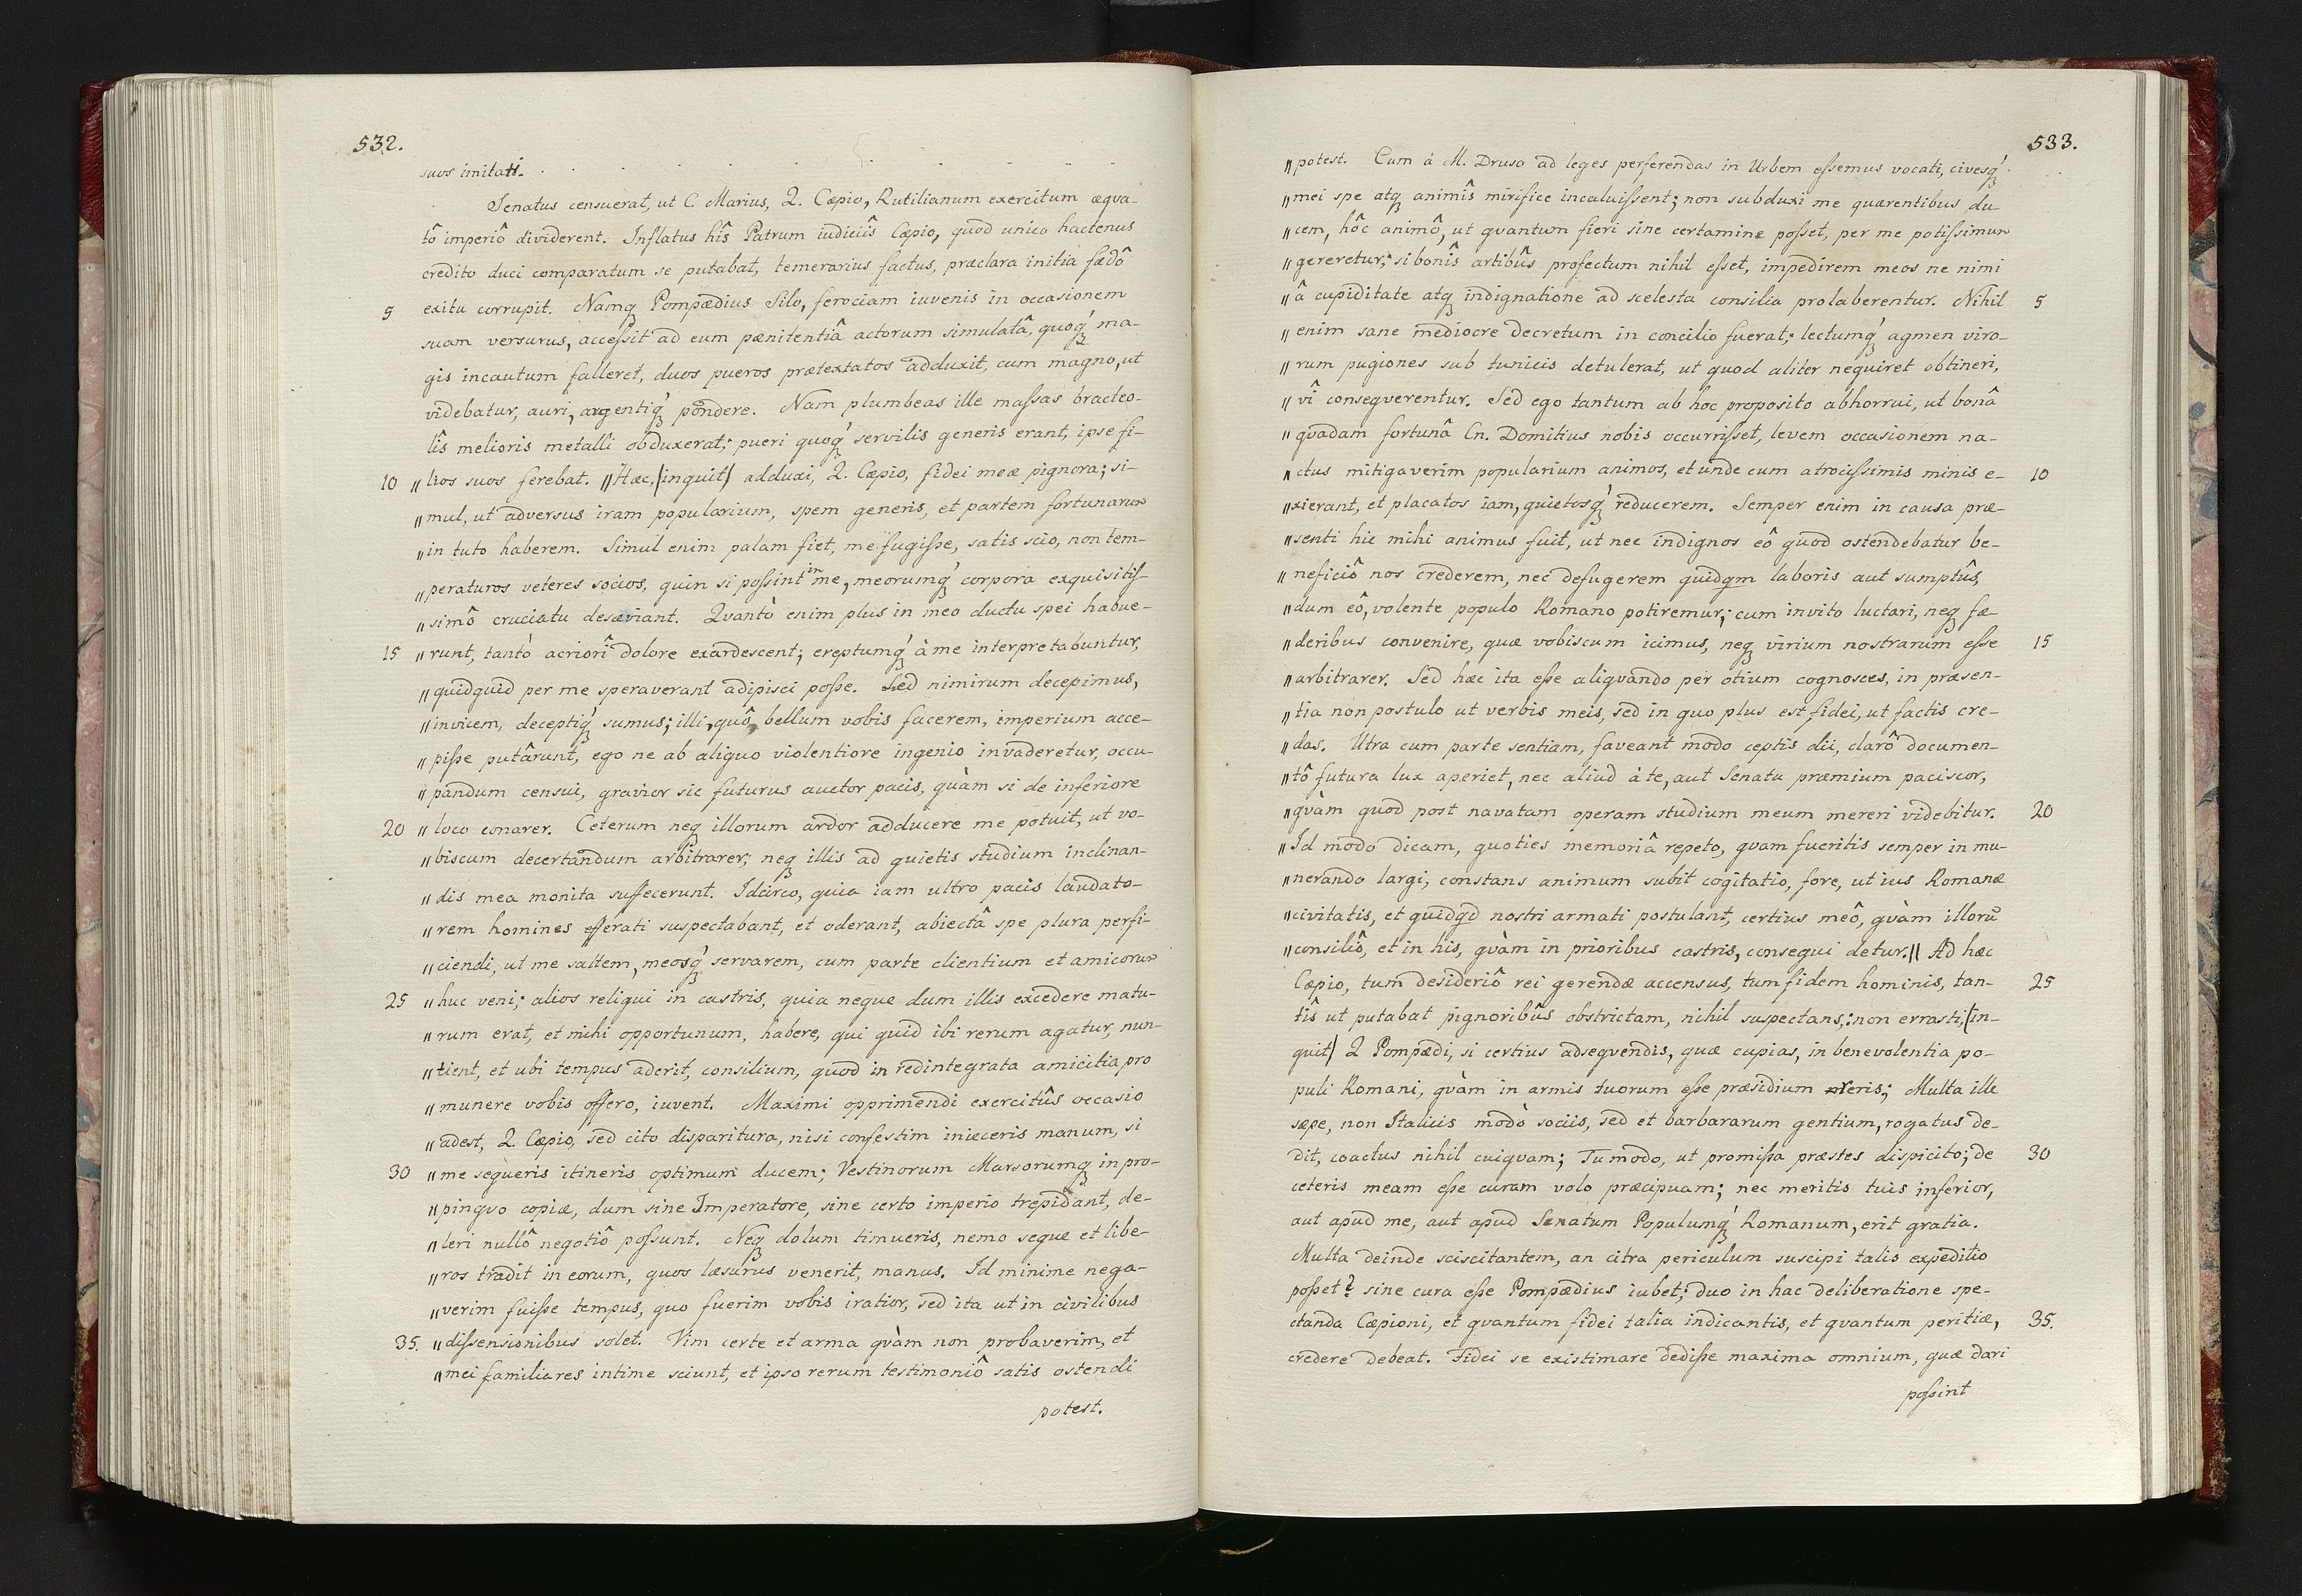 532.
suos imitati. . . . . . . . . .
Senatus censuerat, ut C. Marius, Q. Cæpio, Rutilianum exercitum æqva-
tô imperiô dividerent. Inflatus hîs Patrum iudiciîs Cæpio, quod unico hactenus
credito duci comparatum se putabat, temerarius factus, præclara initia fœdô
5 exitu corrupit. Namq Pompædius Silo, ferociam iuvenis in occasionem
suam versurus, accessit ad eum pænitentiâ actorum simulatâ, quoq́ ma-
gis incautum falleret, duos pueros prætextatos adduxit, cum magno, ut
videbatur, auri, argentiq́ pondere. Nam plumbeas ille massas bracteo-
lîs melioris metalli obduxerat; pueri quoq́ servilis generis erant, ipse fi-
10 „lios suos ferebat. „Hæc, (inquit) adduxi, Q. Cæpio, fidei meæ pignora; si-
„mul, ut adversus iram popularium, spem generis, et partem fortunarum
„in tuto haberem. Simul enim palam fiet, me fugisse, satis scio, non tem-
„peraturos veteres socios, quin si possint in me, meorumq́ corpora exquisitis-
„simô cruciatu desæviant. Qvantò enim plus in meo ductu spei habue-
15 „runt, tantò acriorî dolore exardescent; ereptumq́ à me interpretabuntur,
„quidquid per me speraverant adipisci posse. Sed nimirum decepimus,
„invicem, deceptiq́ sumus; illi, quô bellum vobis facerem, imperium acce-
„pisse putârunt, ego ne ab aliquo violentiore ingenio invaderetur, occu-
„pandum censui, gravior sic futurus auctor pacis, quàm si de inferiore
20 „loco conarer. Ceterum neq illorum ardor adducere me potuit, ut vo-
„biscum decertandum arbitrarer; neq illis ad quietis studium inclinan-
„dis mea monita suffecerunt. Idcirco, quia iam ultro pacis laudato-
„rem homines efferati suspectabant, et oderant, abiectâ spe plura perfi-
„ciendi, ut me saltem, meosq́ servarem, cum parte clientium et amicorum
25 „huc veni; alios reliqui in castris, quia neque dum illis excedere matu-
„rum erat, et mihi opportunum, habere, qui quid ibi rerum agatur, nun-
„tient, et ubi tempus aderit, consilium, quod in redintegrata amicitia pro
„munere vobis offero, iuvent. Maximi opprimendi exercitûs occasio
„adest, Q. Cæpio, sed cito disparitura, nisi confestim inieceris manum, si
30 „me seqveris itineris optimum ducem; Vestinorum Marsorumq in pro-
„pinqvo copiæ, dum sine Imperatore, sine certo imperio trepidant, de-
„leri nullô negotiô possunt. Neq dolum timueris, nemo seque et libe-
„ros tradit in eorum, quos læsurus venerit, manus. Id minime nega-
„verim fuisse tempus, quo fuerim vobis iratior, sed ita ut in civilibus
35. „dissensionibus solet. Vim certe et arma qvàm non probaverim, et
„mei familiares intime sciunt, et ipso rerum testimoniô satis ostendi
potest.
533.
„potest. Cum à M. Druso ad leges perferendas in Urbem essemus vocati, civesq́
„mei spe atq animîs mirifice incaluissent; non subduxi me quærentibus du-
„cem, hôc animô, ut qvantum fieri sine certamine posset, per me potissimum
„gereretur; si bonîs artibûs profectum nihil esset, impedirem meos ne nimi
„â cupiditate atq indignatione ad scelesta consilia prolaberentur. Nihil 5
„enim sane mediocre decretum in concilio fuerat; lectumq́ agmen viro-
„rum pugiones sub tunicis detulerat, ut quod aliter nequiret obtineri,
„vî conseqverentur. Sed ego tantum ab hoc proposito abhorrui, ut bonâ
„qvadam fortunâ Cn. Domitius nobis occurrisset, levem occasionem na-
„ctus mitigaverim popularium animos, et unde cum atrocissimis minis e- 10
„xierant, et placatos iam, quietosq́ reducerem. Semper enim in causa præ-
„senti hic mihi animus fuit, ut nec indignos eô quod ostendebatur be-
„neficiô nos crederem, nec defugerem quidqm laboris aut sumptûs,
„dum eô, volente populo Romano potiremur; cum invito luctari, neq fœ-
„deribus convenire, quæ vobiscum icimus, neq virium nostrarum esse 15
„arbitrarer. Sed hæc ita esse aliqvando per otium cognosces, in præsen-
„tia non postulo ut verbis meis, sed in quo plus est fidei, ut factis cre-
„das. Utra cum parte sentiam, faveant modo ceptis dii, clarô documen-
„tô futura lux aperiet, nec aliud à te, aut Senatu præmium paciscor,
„qvàm quod post navatam operam studium meum mereri videbitur. 20
„Id modo dicam, quoties memoriâ repeto, qvam fueritis semper in mu-
„nerando largi, constans animum subit cogitatio, fore, ut ius Romanæ
„civitatis, et quidqd nostri armati postulant, certius meô, qvàm illorū
„consiliô, et in his, qvàm in prioribus castris, consequi detur.„ Ad hæc
Cæpio, tum desideriô rei gerendæ accensus, tum fidem hominis, tan- 25
tîs ut putabat pignoribûs obstrictam, nihil suspectans,: non errasti, (in-
quit) Q Pompædi, si certius adseqvendis, quæ cupias, in benevolentia po-
puli Romani, qvàm in armis tuorum esse præsidium reris; Multa ille
sæpe, non Italicis modò sociis, sed et barbararum gentium, rogatus de-
dit, coactus nihil cuiqvam; Tu modo, ut promissa præstes dispicito; de 30
ceteris meam esse curam volo præcipuam; nec meritis tuis inferior,
aut apud me, aut apud Senatum Populumq́ Romanum, erit gratia.
Multa deinde sciscitantem, an citra periculum suscipi talis expeditio
posset? sine cura esse Pompædius iubet; duo in hac deliberatione spe-
ctanda Cæpioni, et qvantum fidei talia indicantis, et qvantum peritiæ, 35.
credere debeat. Fidei se existimare dedisse maxima omnium, quæ dari
possint